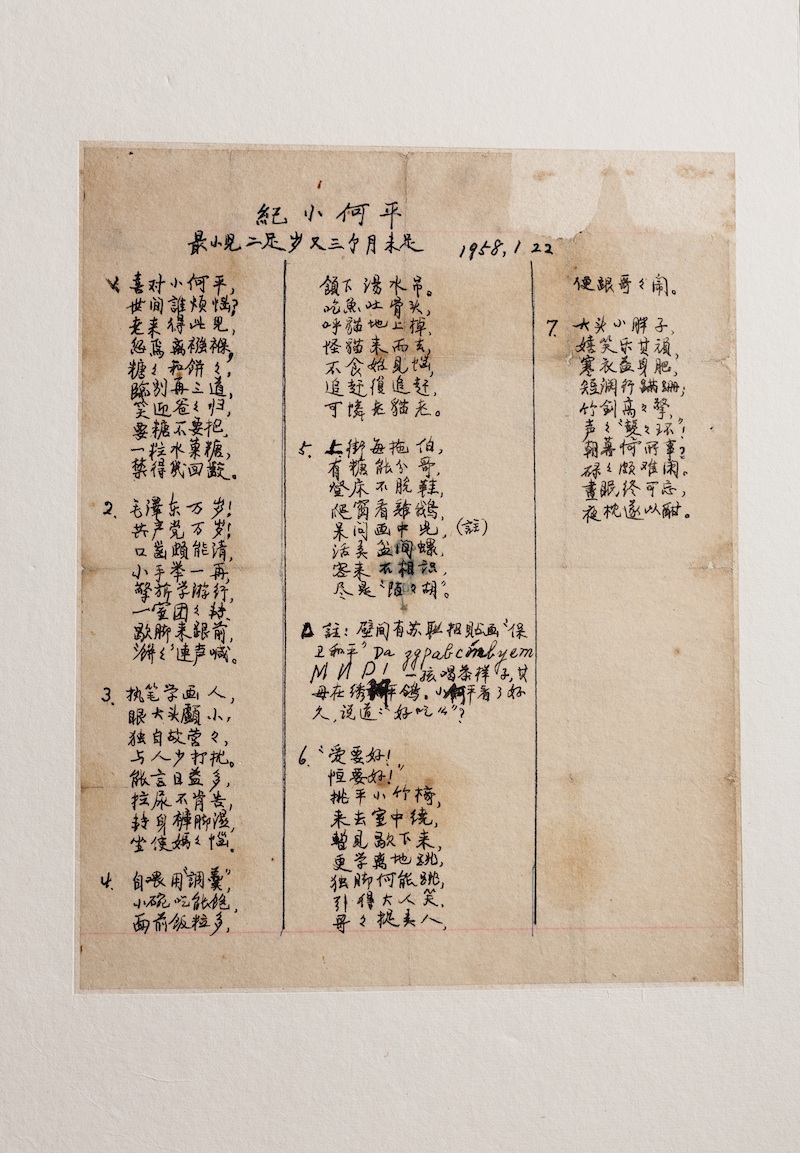 紀小何平
最小兒二足岁又三个月未足 1958,1 22
喜对小何平,
世间誰煩惱?
老来得此兒,
忽焉离襁褓,
糖々和餅々,
臨别再三道,
笑迎爸々归,
要糖不要抱,
一粒水菓糖,
禁得幾回齩。
2. 毛澤东万岁!
共产党万岁!
口齒頗能清,
小手举一再,
擎旂学游行,
一室团々转,
歇脚来跟前,
"餅々"連声喊。
3. 执笔学画人,
眼大头顱小,
独自故营々,
与人少打扰。
能言日益多,
拉尿不肯告,
转身褲脚湿,
坐使媽々惱。
4. 自喂用"調羹",
小碗吃能飽,
面前饭粒多,
頷下湯水吊。
吃魚吐骨头,
呼貓地上掉,
怪貓来而去,
不食始見惱,
追赶復追赶,
可憐老貓老。
5. 上街每拖伯,
有糖能分哥,
登床不脱鞋,
爬窗看雞鵝,
呆问画中兒,(註)
活弄盆间螺,
客来不相識,
尽是"陌々胡"。
註:壁间有苏联招貼画"保
卫和平" Да здравствует
МИР! 一孩喝茶样子,其
母在绣和平鸽。小何平看了好
久,说道:"好吃ㄙㄙ"?
6. "爱要好!
恒要好!"
挑平小竹椅,
来去室中绕,
暫見歇下来,
更学离地跳,
独脚何能跳,
引得大人笑。
哥々捉弄人,
便跟哥々闹。
7. 大头小胖子,
嬉笑乐其頑,
寒衣益身肥,
短濶行蹒跚;
竹剑高々擎,
声々
朝暮何所事?
碌々頗难闲。
晝眠终可忘,
夜枕遂以酣。